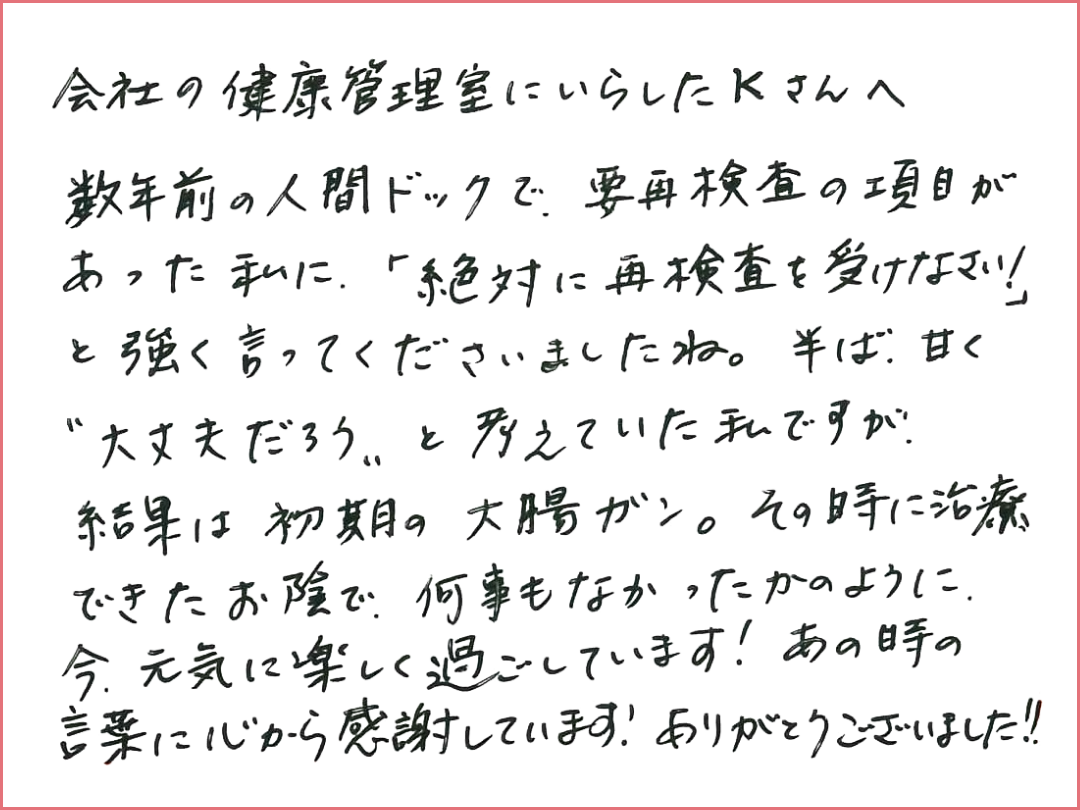 会社の健康管理室にいらしたKさんへ
数年前の人間ドックで、要再検査の項目が
あった私に、「絶対に再検査を受けなさい!」
と強く言ってくださいましたね。半ば、甘く
〝大丈夫だろう〟と考えていた私ですが、
結果は初期の大腸ガン。その時に治療
できたお陰で、何事もなかったかのように、
今、元気に楽しく過ごしています!あの時の
言葉に心から感謝しています!ありがとうございました!!